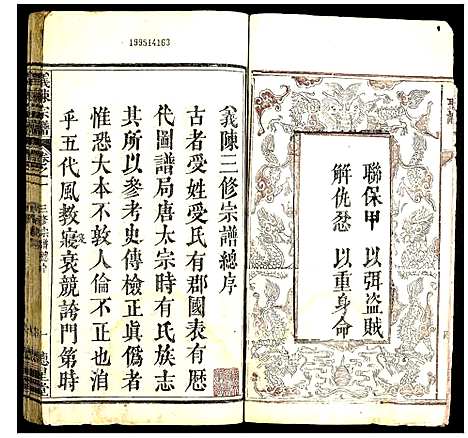 聯保甲 以弭盜賊
解仇忿 以重身命
義陳三修宗譜總序
古者受姓受氏有郡國表有歷
代圖譜局唐太宗時有氏族志
其所以參考史傳檢正眞僞者
惟恐大本不敦人倫不正也洎
乎五代風教寖衰競誇門第時
義陳宗譜
卷之一
三修宗譜總序
一
199514163